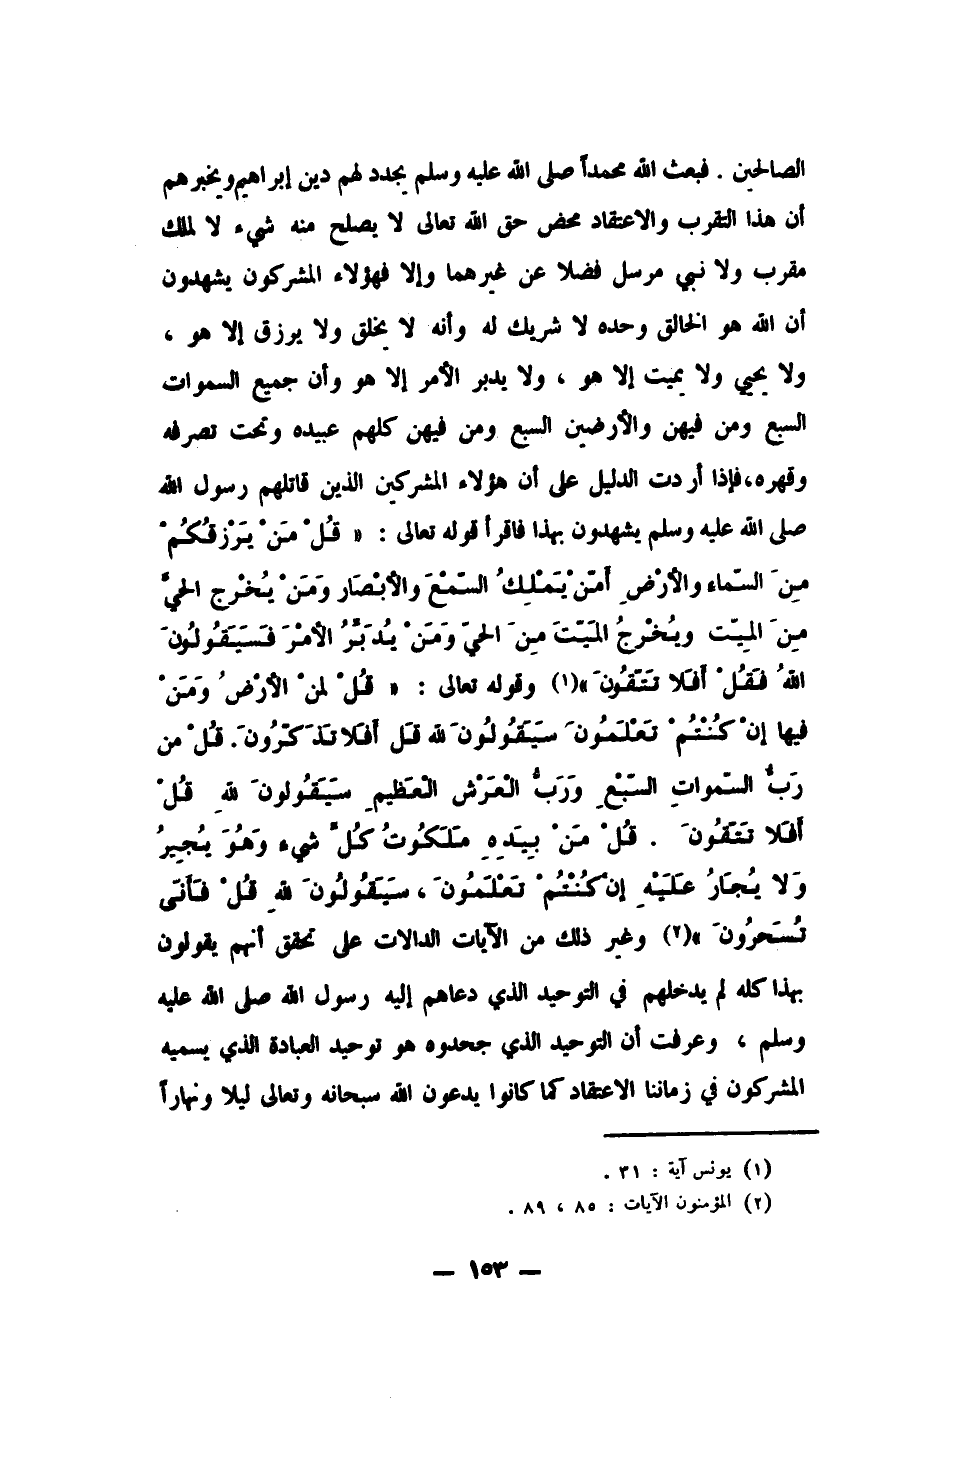 الصالحين . فبعث الله محمداً صلى الله عليه وسلم يجدد لهم دين إبراهيم ويخبرهم
أن هذا التقرب والاعتقاد محض حق الله تعالى لا يصلح منه شيء لا لملك
مقرب ولا نبي مرسل فضلا عن غيرهما وإلا فهؤلاء المشركون يشهدون
أن الله هو الخالق وحده لا شريك له وأنه لا يخلق ولا يرزق إلا هو ،
ولا يحيي ولا يميت إلا هو ، ولا يدبر الأمر إلا هو وأن جميع السموات
السبع ومن فيهن والأرضين السبع ومن فيهن كلهم عبيده وتحت تصرفه
وقهره،فإذا أردت الدليل على أن هؤلاء المشركين الذين قاتلهم رسول الله
صلى الله عليه وسلم يشهدون بهذا فاقرأ قوله تعالى : « قُلْ مَنْ يَرْزقُكُمْ
مِنَ السّماء والأرْضِ أمّنْ يَمْلِكُ السّمْعَ والأبْصَار وَمَنْ يُخْرج الحيَّ
مِنَ المِيّت ويُخْرِجُ المَيّتَ مِنَ الحيّ وَمَنْ يُدَبَّرُ الأمْرَ فَسَيَقُولُونَ
اللهُ فَقُلْ أفَلا تَتّقُونَ »(١) وقوله تعالى : « قُلْ لمنْ الأرْضُ وَمَنْ
فيها إنْ كُنْتُمْ تَعْلَمُونَ سيَقُولُونَ لله قَل أفَلا تَذَكّرُونَ. قُلْ من
رَبُّ السّمواتِ السّبْعِ وَرَبُّ الْعَرْش الْعَظيمِ سَيَقُولونَ للهِ قُلْ
أفَلا تَتّقُونَ . قُلْ مَنْ بِيَدِهِ مَلَكُوتُ كُلَّ شيء وَهُوَ يُجِيرُ
وَلا يُجَارُ عَلَيْهِ إن كُنْتُمْ تَعْلَمُونَ ، سَيَقُولُونَ للهِ قُلْ فَأنّى
تُسْحَرُونَ »(٢) وغير ذلك من الآيات الدالات على تحقق أنهم يقولون
بهذا كله لم يدخلهم في التوحيد الذي دعاهم إليه رسول الله صلى الله عليه
وسلم ، وعرفت أن التوحيد الذي جحدوه هو توحيد العبادة الذي يسميه
المشركون في زماننا الاعتقاد كما كانوا يدعون الله سبحانه وتعالى ليلا ونهاراً
(١) يونس آية : ٣١ .
(٢) المؤمنون الآيات : ٨٥ ، ٨٩ .
— ١٥٣ —